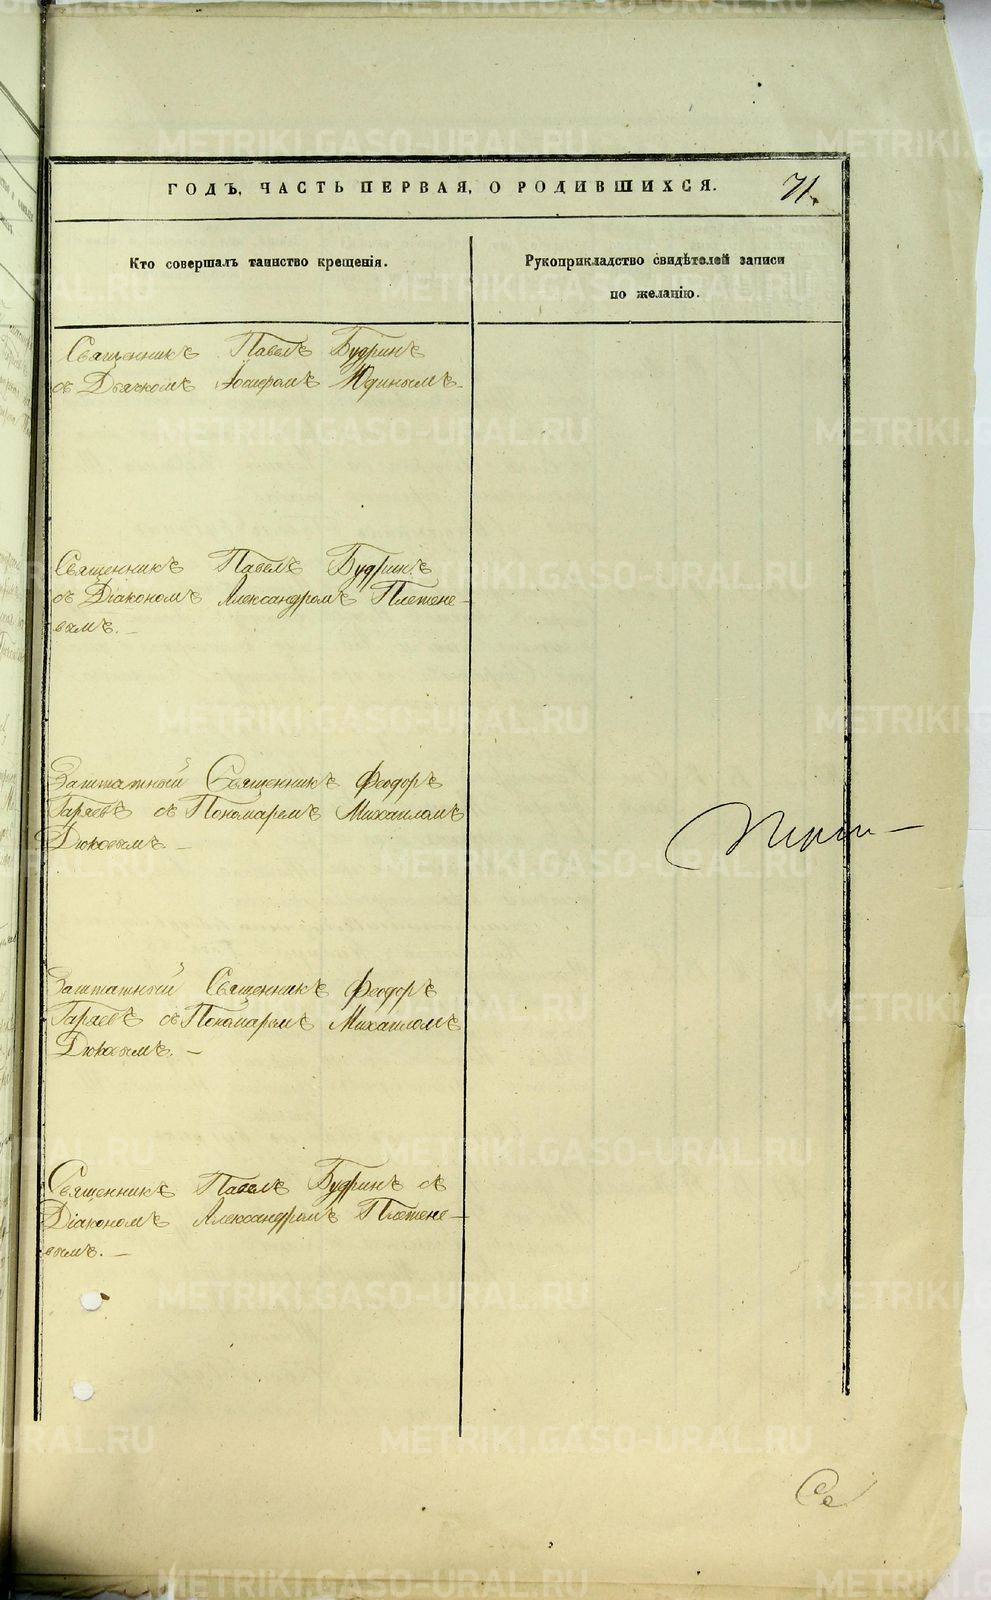 ГОДЪ, ЧАСТЬ ПЕРВАЯ, О РОДИВШИХСЯ.
71.
Кто совершалъ таинство крещенія.
Рукоприкладство свидѣтелей записи
по желанію.
Священникъ Павелъ Будринъ
съ Дьячкомъ Юдинымъ.
Священникъ Павелъ Будринъ
съ Діакономъ Александромъ Плетене-
вымъ. —
Заштатный Священникъ Феодоръ
Гаряевъ съ Пономаремъ Михаиломъ
Дюковымъ. —
Заштатный Священникъ Феодоръ
Гаряевъ съ Пономаремъ Михаиломъ
Дюковымъ. —
Священникъ Павелъ Будринъ съ
Діакономъ Александромъ Плетене-
вымъ. —
METRIKI.GASO-URAL.RU